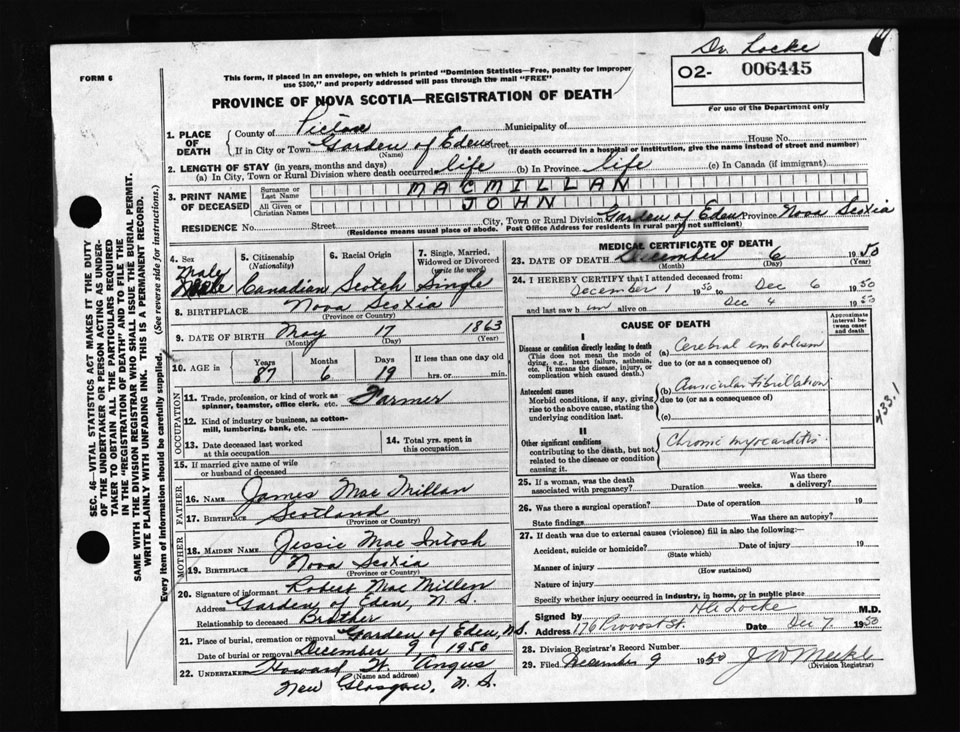 Dr. Locke
FORM 6
This form, if placed in an envelope, on which is printed "Dominion Statistics—Free, penalty for improper
use $300," and properly addressed will pass through the mail "FREE"
02- 006445
For use of the Department only
PROVINCE OF NOVA SCOTIA—REGISTRATION OF DEATH
1. PLACE OF DEATH
County of Pictou Municipality of
If in City or Town Garden of Eden Street House No.
(Name) (If death occurred in a hospital or institution, give the name instead of street and number)
2. LENGTH OF STAY (in years, months and days)
(a) In City, Town or Rural Division where death occurred life (b) In Province life (c) In Canada (if immigrant)
3. PRINT NAME OF DECEASED
Surname or Last Name MACMILLAN
All Given or Christian Names JOHN
RESIDENCE No. Street City, Town or Rural Division Garden of Eden Province Nova Scotia
(Residence means usual place of abode. Post Office Address for residents in rural parts not sufficient)
4. Sex Male
5. Citizenship (Nationality) Canadian
6. Racial Origin Scotch
7. Single, Married, Widowed or Divorced (write the word) Single
8. BIRTHPLACE Nova Scotia
(Province or Country)
9. DATE OF BIRTH May 17 1863
(Month) (Day) (Year)
10. AGE in Years 87 Months 6 Days 19 If less than one day old hrs. or min.
OCCUPATION
11. Trade, profession, or kind of work as spinner, teamster, office clerk, etc. Farmer
12. Kind of industry or business, as cotton-mill, lumbering, bank, etc.
13. Date deceased last worked at this occupation
14. Total yrs. spent in this occupation
15. If married give name of wife or husband of deceased
FATHER
16. NAME James Mac Millan
17. BIRTHPLACE Scotland
(Province or Country)
MOTHER
18. MAIDEN NAME Jessie Mac Intosh
19. BIRTHPLACE Nova Scotia
(Province or Country)
20. Signature of informant Robert Mac Millen
Address Garden of Eden, N. S.
Relationship to deceased Brother
21. Place of burial, cremation or removal Garden of Eden, N.S.
Date of burial or removal December 9, 1950
22. UNDERTAKER Howard W. Angus
(Name and address)
New Glasgow, N. S.
MEDICAL CERTIFICATE OF DEATH
23. DATE OF DEATH December 6 1950
(Month) (Day) (Year)
24. I HEREBY CERTIFY that I attended deceased from:
December 1 1950 to Dec 6 1950
and last saw him alive on Dec 4 1950
CAUSE OF DEATH
Approximate interval between onset and death
I
Disease or condition directly leading to death
(This does not mean the mode of dying, e.g., heart failure, asthenia, etc. It means the disease, injury, or complication which caused death.)
(a) Cerebral embolism
due to (or as a consequence of)
Antecedent causes
Morbid conditions, if any, giving rise to the above cause, stating the underlying condition last.
(b) Auricular Fibrillation
due to (or as a consequence of)
(c)
433.1
II
Other significant conditions
contributing to the death, but not related to the disease or condition causing it.
Chronic myocarditis
25. If a woman, was the death associated with pregnancy? Duration weeks. Was there a delivery?
26. Was there a surgical operation? Date of operation 19
State findings Was there an autopsy?
27. If death was due to external causes (violence) fill in also the following:—
Accident, suicide or homicide? Date of injury 19
(State which)
Manner of injury
(How sustained)
Nature of injury
Specify whether injury occurred in industry, in home, or in public place
Signed by Locke M.D.
Address 176 Provost St. Date Dec 7 1950
28. Division Registrar's Record Number
29. Filed December 9 1950
(Division Registrar)
SEC. 46—VITAL STATISTICS ACT MAKES IT THE DUTY
OF THE UNDERTAKER OR PERSON ACTING AS UNDER-
TAKER TO OBTAIN ALL THE PARTICULARS REQUIRED
IN THE "REGISTRATION OF DEATH" AND TO FILE THE
SAME WITH THE DIVISION REGISTRAR WHO SHALL ISSUE THE BURIAL PERMIT.
WRITE PLAINLY WITH UNFADING INK. THIS IS A PERMANENT RECORD.
Every item of information should be carefully supplied. (See reverse side for instructions.)